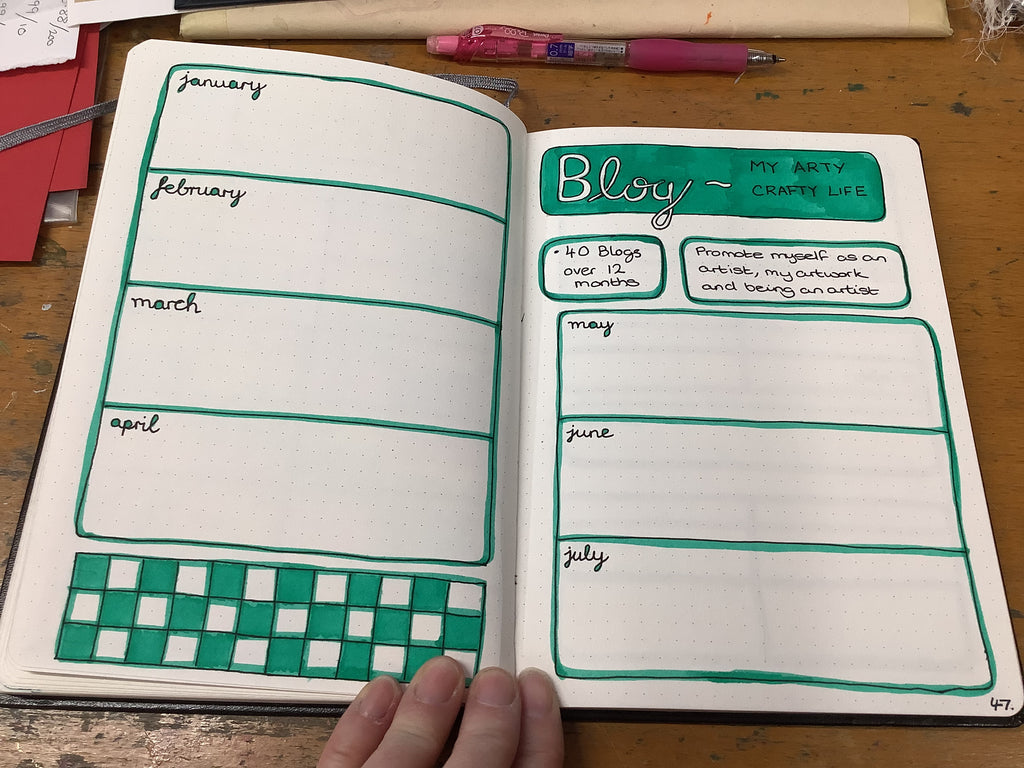 january
february
march
april
Blog ~
MY ARTY
CRAFTY LIFE
• 40 Blogs
over 12
months
Promote myself as an
artist, my artwork
and being an artist
may
june
july
47.